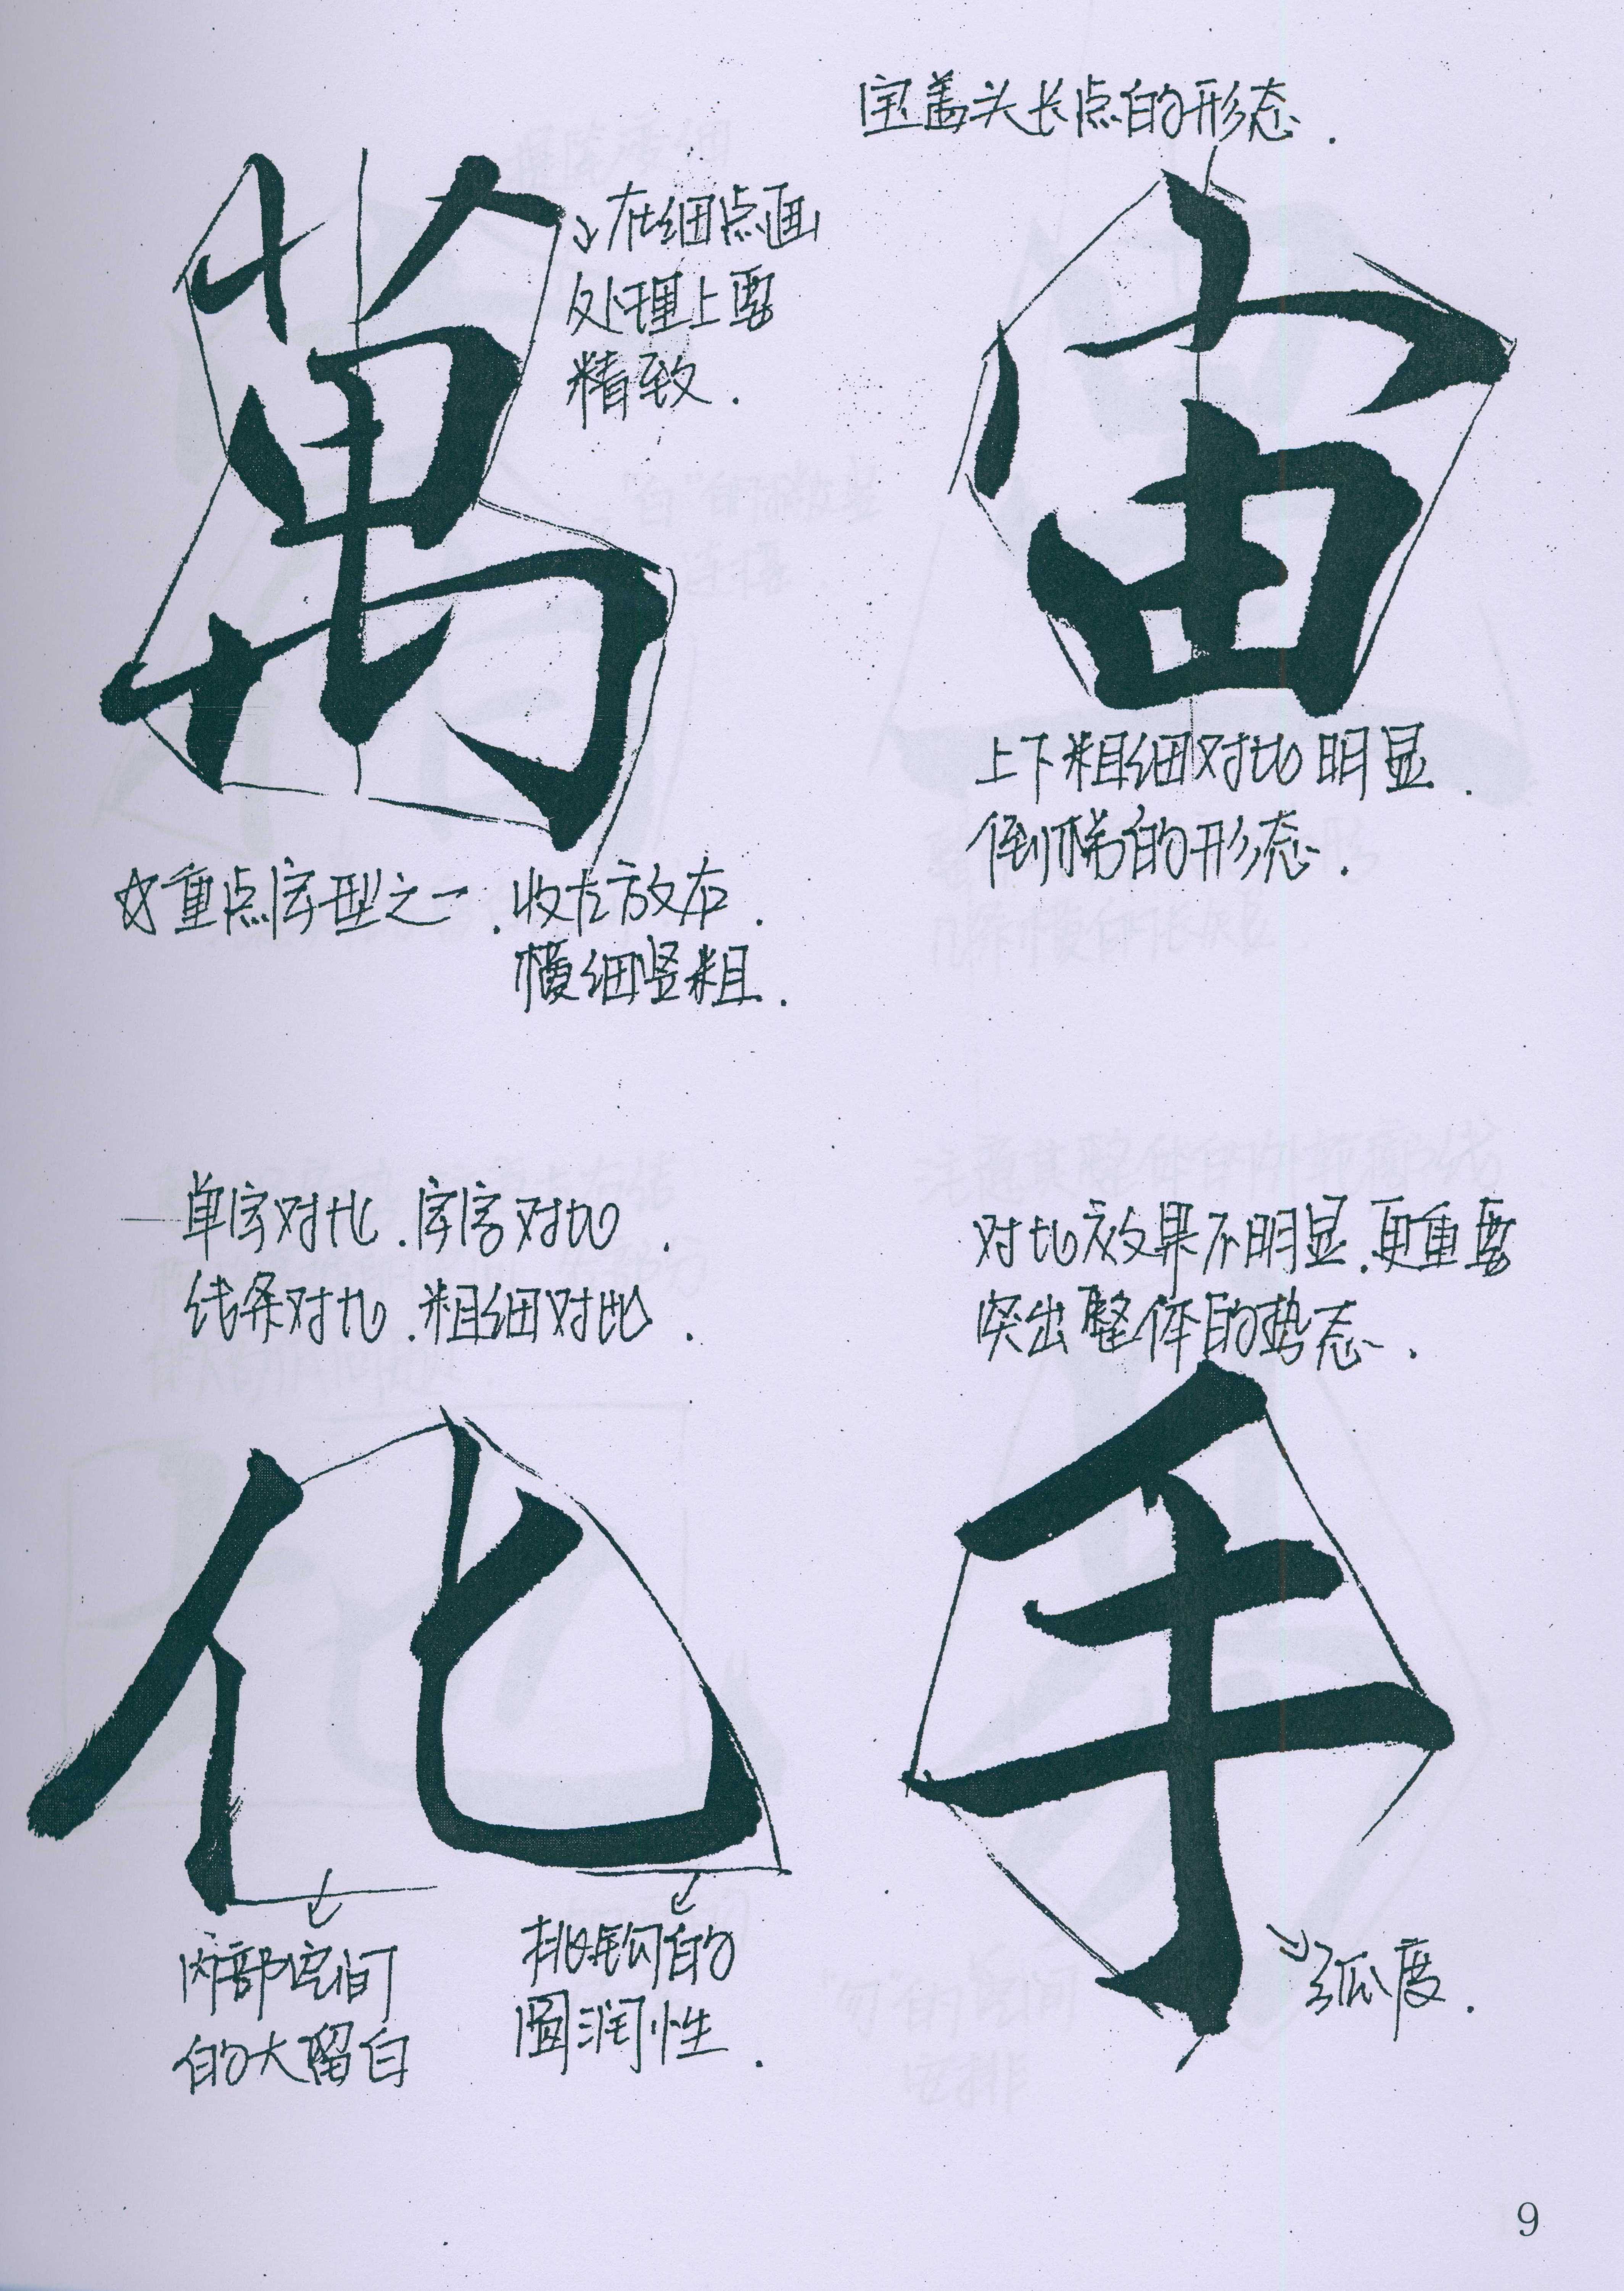 宝盖头长点的形态.
萬
在细点画
处理上要
精致.
宙
上下粗细对比明显.
倒梯的形态.
☆重点字型之一.收左放右.
横细竖粗.
单字对比.字字对比.
线条对比.粗细对比.
对比效果不明显.更重要
突出整体的势态.
化
手
内部空间
的大留白
挑尾钩的
圆润性.
弧度.
9